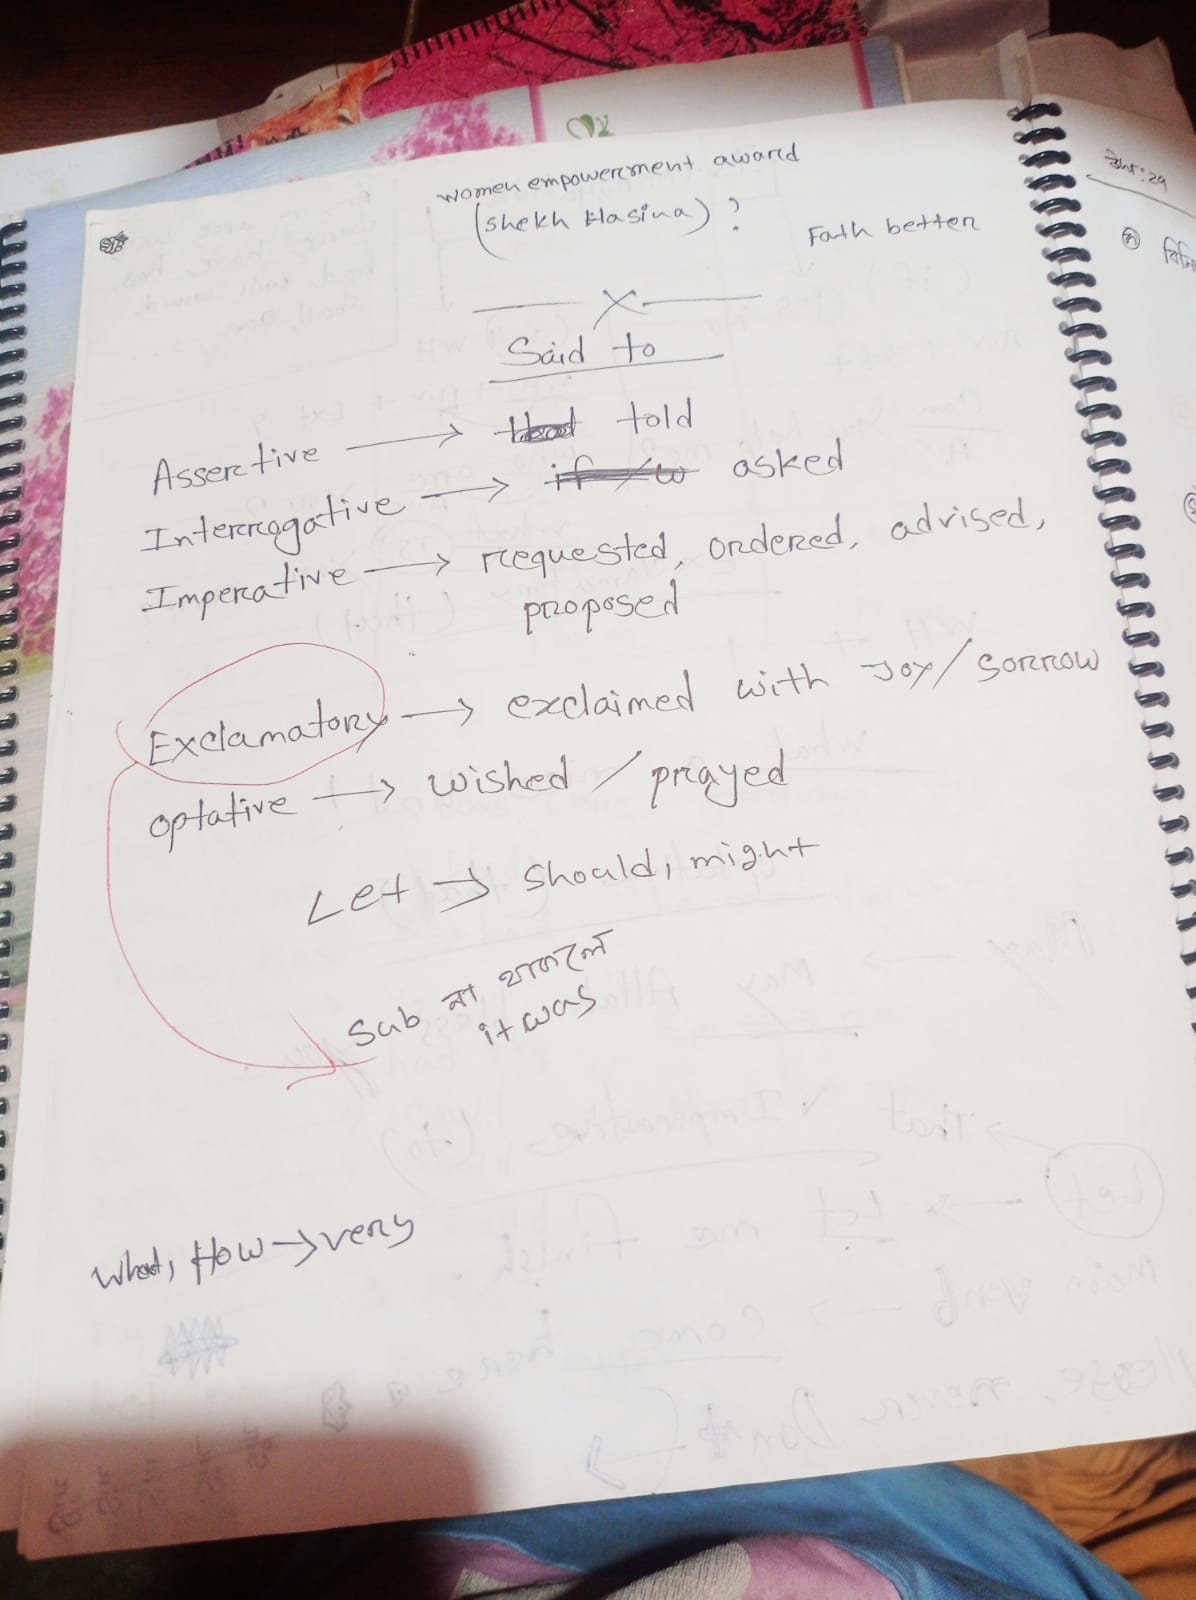 women empowerment award
(Shekh Hasina) ?
Fath better
Said to
Assertive → told
Interrogative → asked
Imperative → requested, ordered, advised,
proposed
Exclamatory → exclaimed with Joy/Sorrow
optative → wished / prayed
Let → should, might
Sub না থাকলে
it was
What, How → very